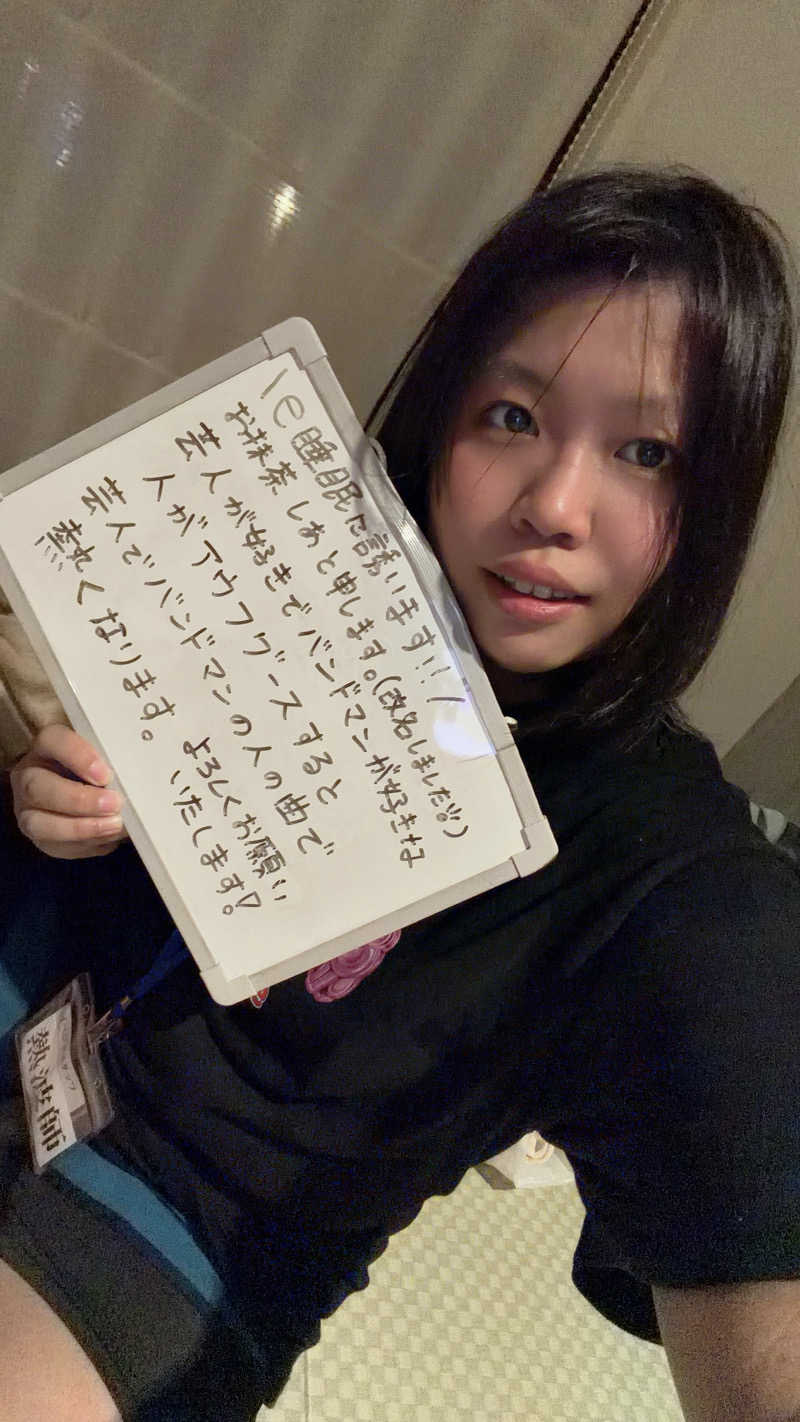 \e睡眠に誘います!!/
お抹茶しあと申します。(改名しました!!。)
芸人が好きでバンドマンが好きな
人がアウフグースすると
芸人でバンドマンの人の曲で
熱くなります。
よろしくお願い
いたします!。
熱波師